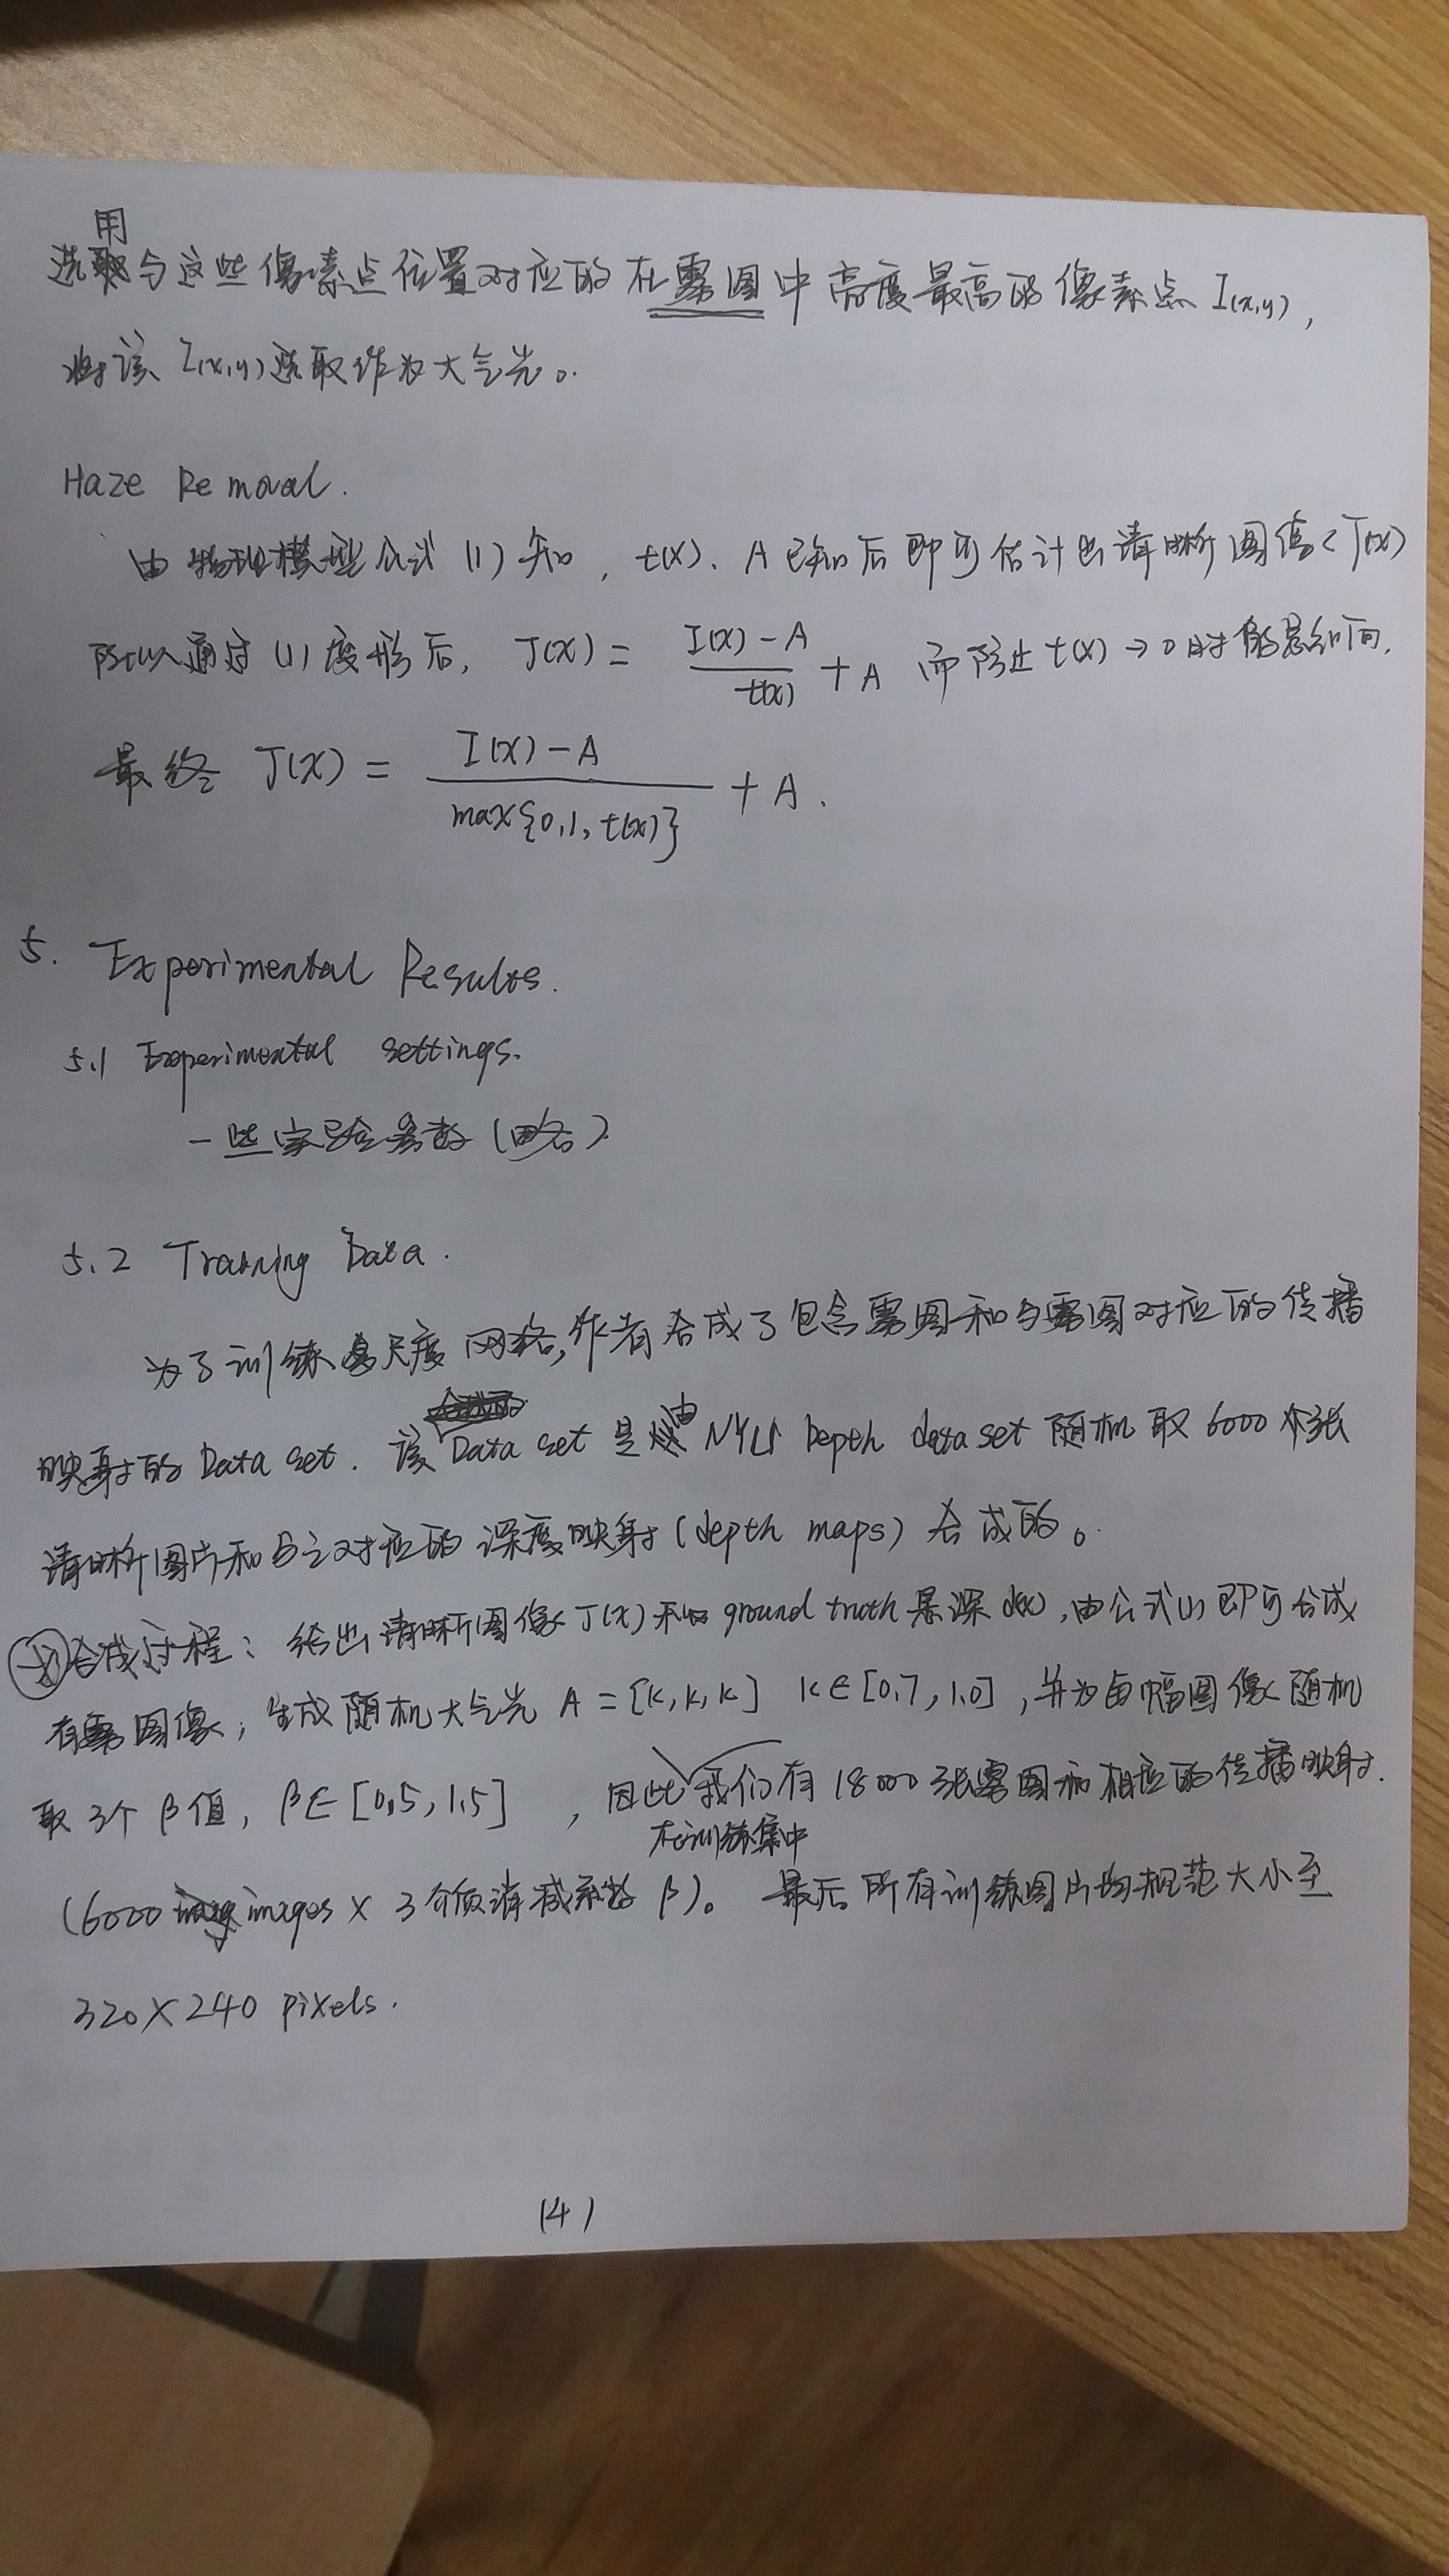 选用与这些像素点位置对应的在雾图中亮度最高的像素点 I(x,y),
将该 I(x,y) 选取作为大气光。
Haze Removal.
由物理模型公式 (1) 知, t(x)、A 已知后即可估计出清晰图像 J(x)
所以通过 (1) 变形后, J(x) = \frac{I(x)-A}{t(x)} + A 而防止 t(x) → 0 时
最终 J(x) = \frac{I(x)-A}{max{0.1, t(x)}} + A.
5. Experimental Results.
5.1 Experimental settings.
一些实验参数 (略).
5.2 Training Data.
为了训练多尺度网络,作者合成了包含雾图和与雾图对应的传播
映射的 Data set. 该 Data set 是由 NYU Depth data set 随机取 6000 张
清晰图片和与之对应的深度映射 (depth maps) 合成的。
合成过程: 给出清晰图像 J(x) 和 ground truth 景深 d(x), 由公式(1)即可合成
有雾图像, 生成随机大气光 A = [k, k, k] k∈[0.7, 1.0], 并为每幅图像随机
取 3个 β 值, β∈[0.5, 1.5] , 因此在训练集中我们有 18000 张雾图和相应的传播映射.
(6000 images × 3 个 消减系数 β)。 最后所有训练图片均规范大小至
320×240 pixels.
(4)